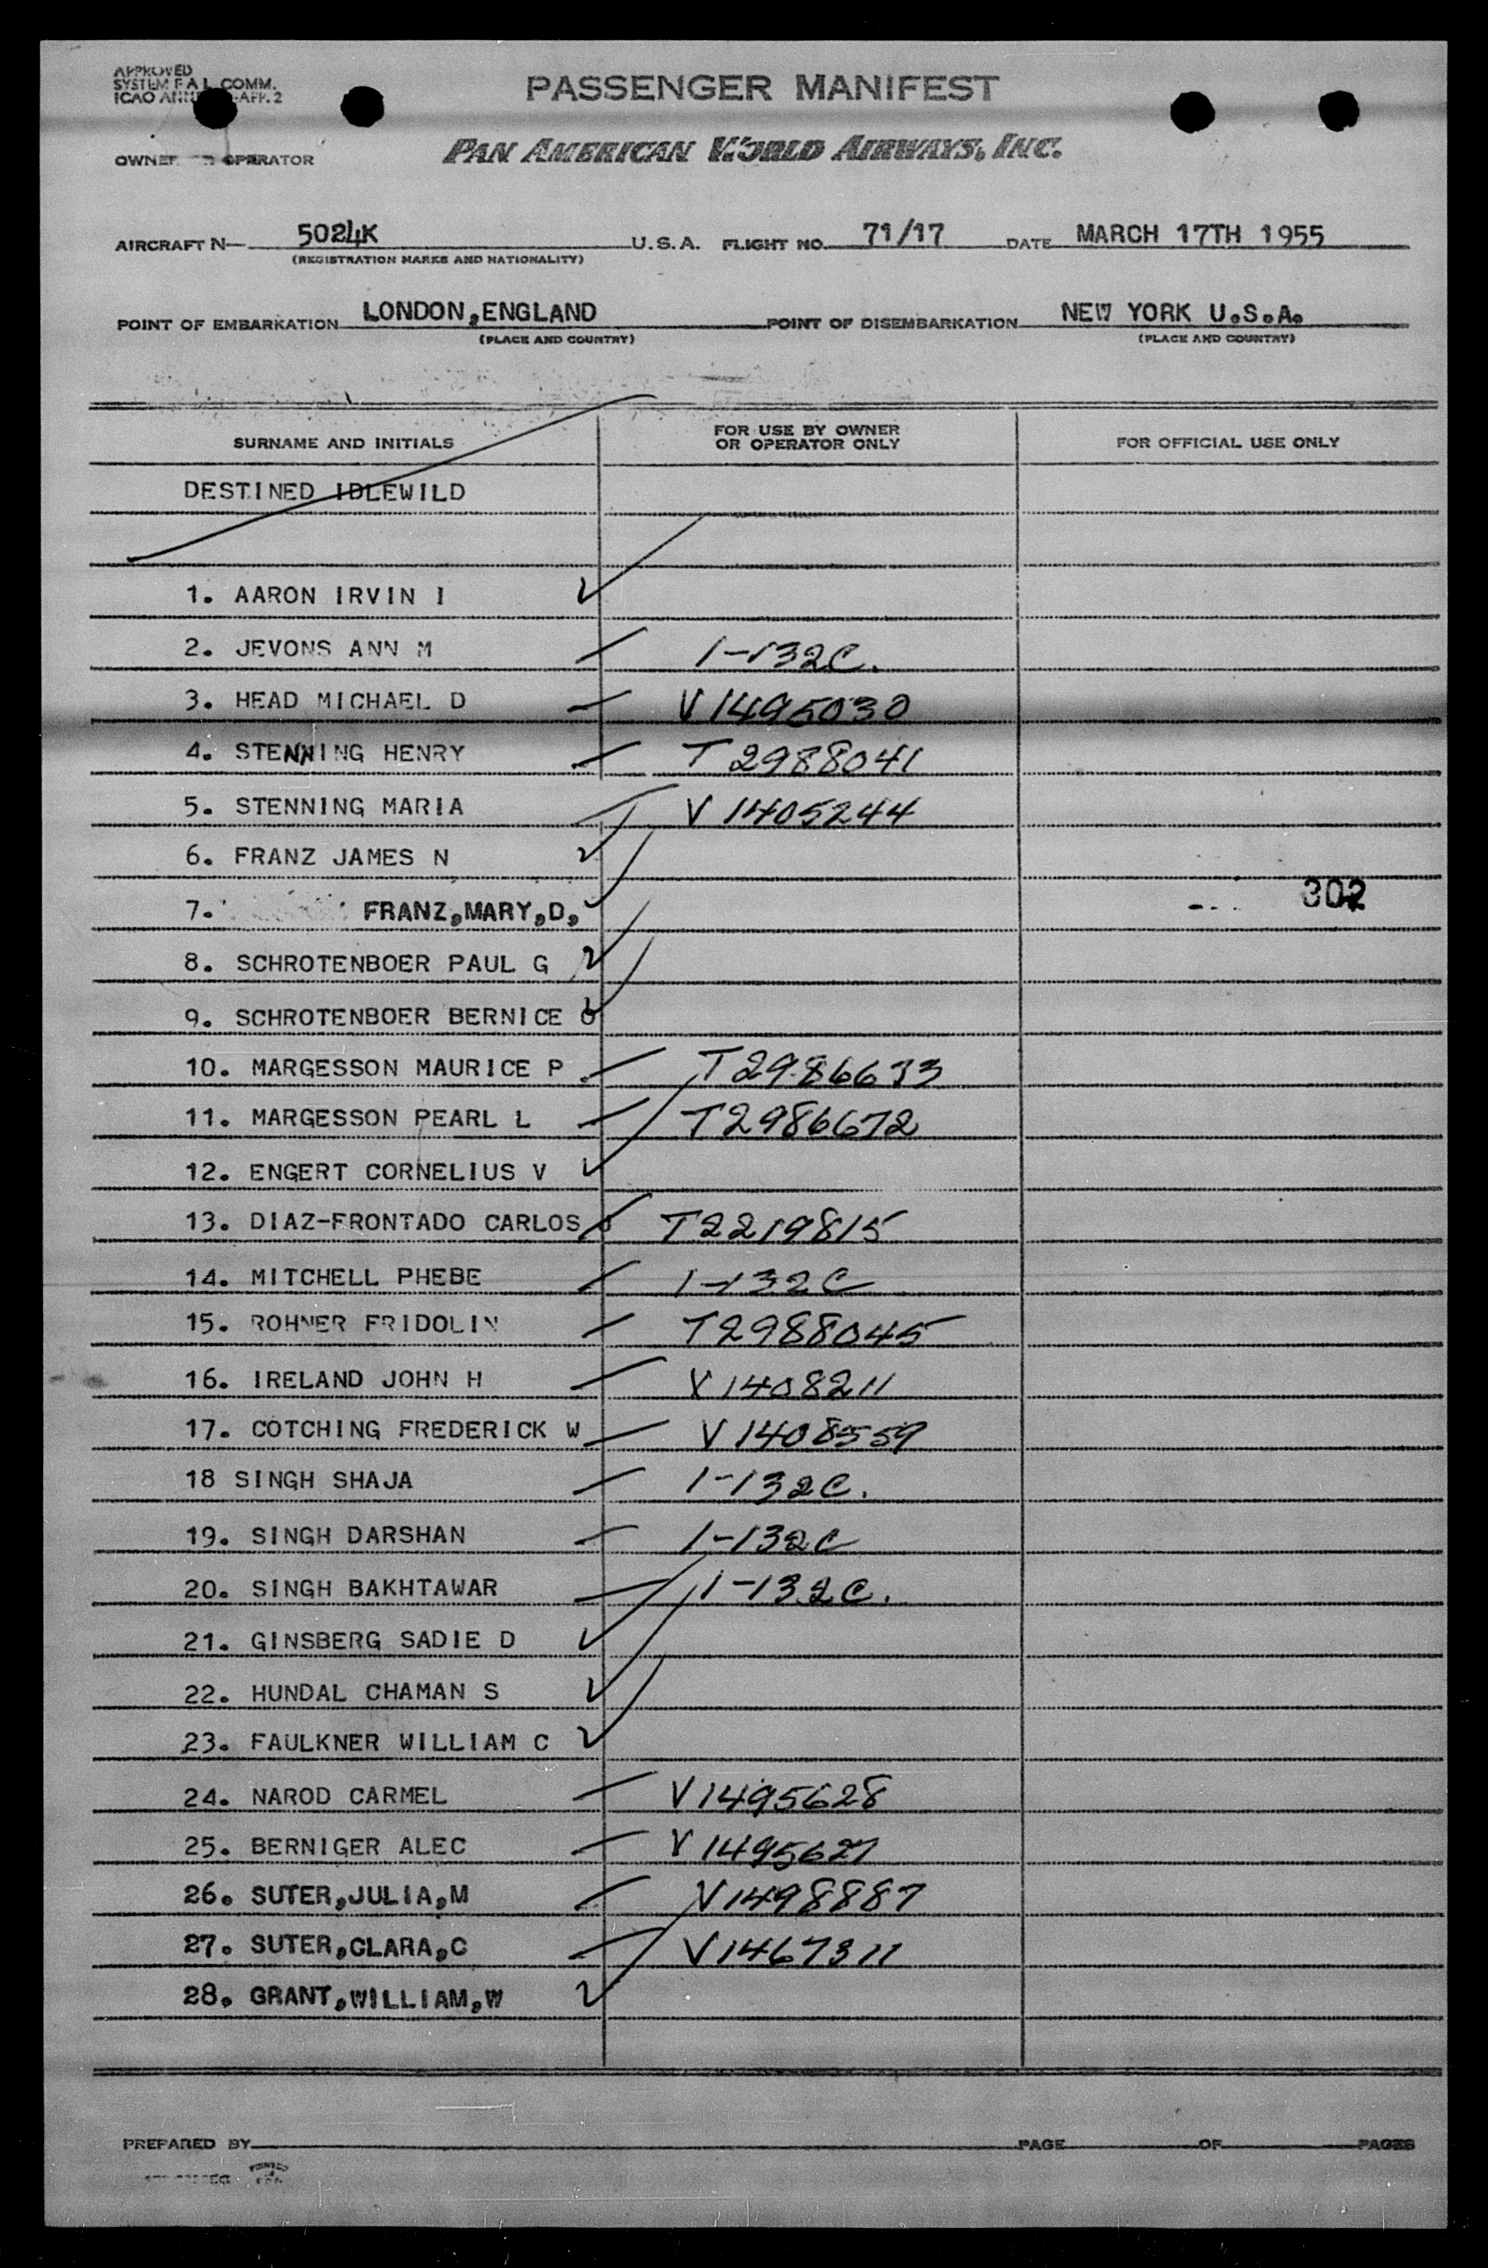 APPROVED
SYSTEM F A L COMM.
ICAO APP. 2
PASSENGER MANIFEST
OPERATOR PAN AMERICAN WORLD AIRWAYS, INC.
AIRCRAFT N— 5024K U.S.A. FLIGHT NO. 71/17 DATE MARCH 17TH 1955
(REGISTRATION MARKS AND NATIONALITY)
POINT OF EMBARKATION LONDON,ENGLAND POINT OF DISEMBARKATION NEW YORK U.S.A.
(PLACE AND COUNTRY) (PLACE AND COUNTRY)
SURNAME AND INITIALS FOR USE BY OWNER OR OPERATOR ONLY FOR OFFICIAL USE ONLY
DESTINED IDLEWILD
1. AARON IRVIN I
2. JEVONS ANN M 1-132C.
3. HEAD MICHAEL D V1495030
4. STENNING HENRY T2988041
5. STENNING MARIA V1405244
6. FRANZ JAMES N
7. FRANZ,MARY,D, 302
8. SCHROTENBOER PAUL G
9. SCHROTENBOER BERNICE
10. MARGESSON MAURICE P T2986633
11. MARGESSON PEARL L T2986672
12. ENGERT CORNELIUS V
13. DIAZ-FRONTADO CARLOS T2219815
14. MITCHELL PHEBE 1-132C
15. ROHNER FRIDOLIN T2988045
16. IRELAND JOHN H V1408211
17. COTCHING FREDERICK W V1408559
18 SINGH SHAJA 1-132C.
19. SINGH DARSHAN 1-132C
20. SINGH BAKHTAWAR 1-132C.
21. GINSBERG SADIE D
22. HUNDAL CHAMAN S
23. FAULKNER WILLIAM C
24. NAROD CARMEL V1495628
25. BERNIGER ALEC V1495627
26. SUTER,JULIA,M V1498887
27. SUTER,CLARA,C V1467311
28. GRANT,WILLIAM,W
PREPARED BY PAGE OF PAGES